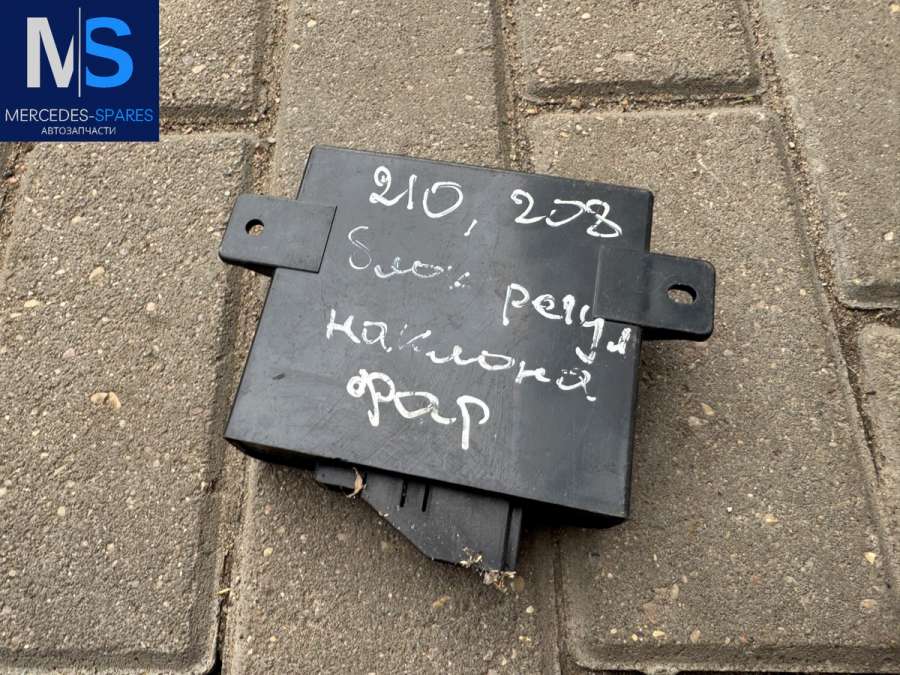 MS
MERCEDES-SPARES
АВТОЗАПЧАСТИ
210, 208
блок регул
наклона
фар